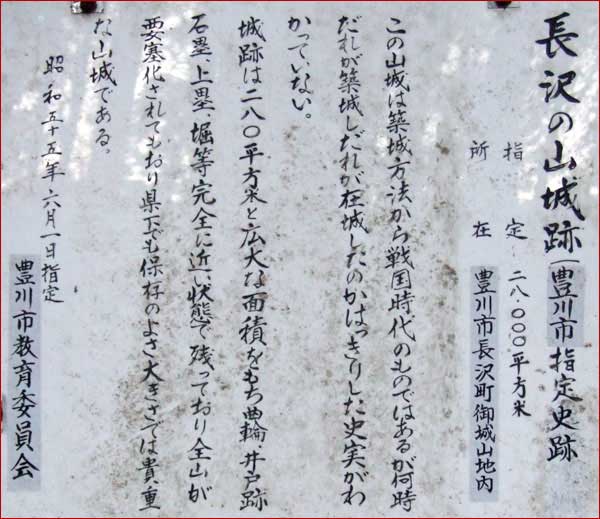 長沢の山城跡(豊川市指定史跡
指定 二八〇〇〇平方米
所在 豊川市長沢町御城山地内
この山城は築城方法から戦国時代のものではあるが何時
だれが築城しだれが在城したのかはっきりした史実がわ
かっていない。
城跡は二八〇平方米と広大な面積をもち曲輪、井戸跡
石塁、上塁、堀等完全に近い状態で残っており全山が
要塞化されてもおり県下でも保存のよさ大きさでは貴重
な山城である。
昭和五十五年六月一日指定
豊川市教育委員会